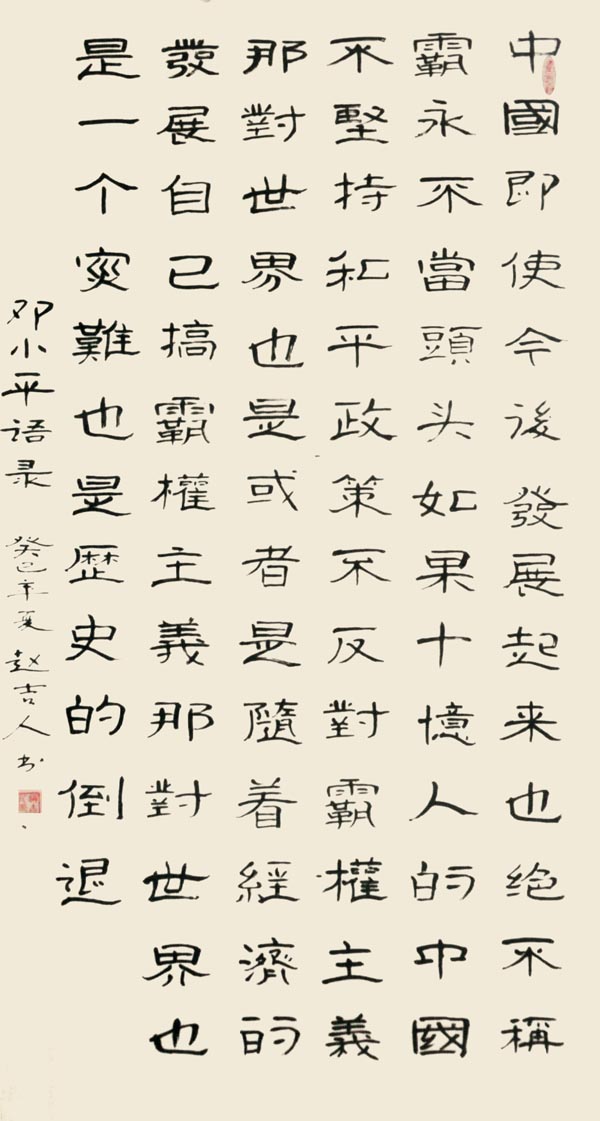 中國即使今後發展起来也绝不稱
霸永不當頭头如果十憶人的中國
不堅持和平政策不反對霸權主義
那對世界也是或者是隨着經濟的
發展自己搞霸權主義那對世界也
是一个灾難也是歴史的倒退
邓小平语录 癸巳年夏 赵吉人书